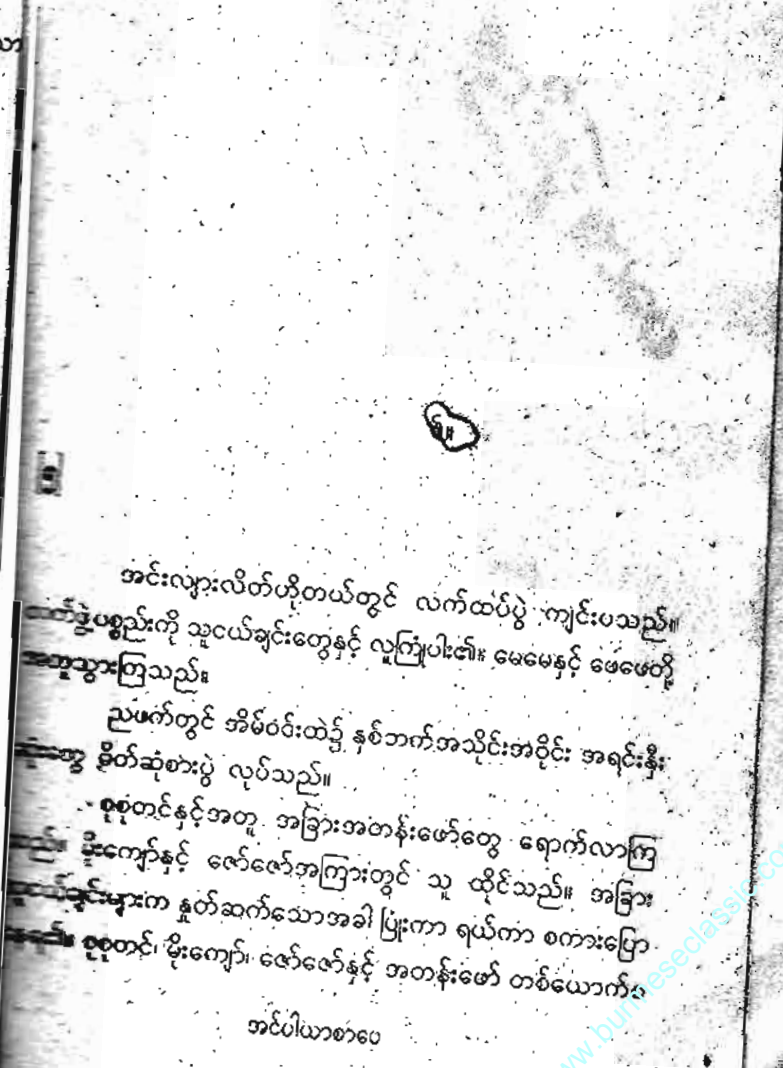 အင်းလျားလိတ်ဟိုတယ်တွင် လက်ထပ်ပွဲ ကျင်းပသည်။
ပစ္စည်းကို သူငယ်ချင်းတွေနှင့် လူကြုံပါး၏။ မေမေနှင့် ဖေဖေတို့
အတူသွားကြသည်။
ညဖက်တွင် အိမ်ဝင်းထဲ၌ နှစ်ဘက်အသိုင်းအဝိုင်း အရင်းနှီး
မိတ်ဆုံစားပွဲ လုပ်သည်။
စုစုတင်နှင့်အတူ အခြားအတန်းဖော်တွေ ရောက်လာကြ
သည်။ မိုးကျော်နှင့် ဇော်ဇော်အကြားတွင် သူ ထိုင်သည်။ အခြား
သူငယ်ချင်းများက နှုတ်ဆက်သောအခါ ပြုံးကာ ရယ်ကာ စကားပြော
နေရ၏။ စုစုတင်၊ မိုးကျော်၊ ဇော်ဇော်နှင့် အတန်းဖော် တစ်ယောက်က
အင်ပါယာစာပေ